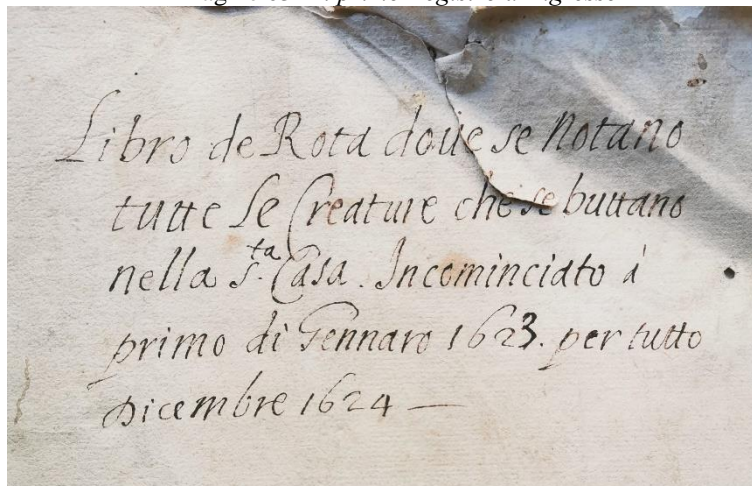 Libro de Rota doue se Notano
tutte le Creature che se buttano
nella s.ta Casa. Incominciato à
primo di Gennaro 1623. per tutto
Dicembre 1624 —